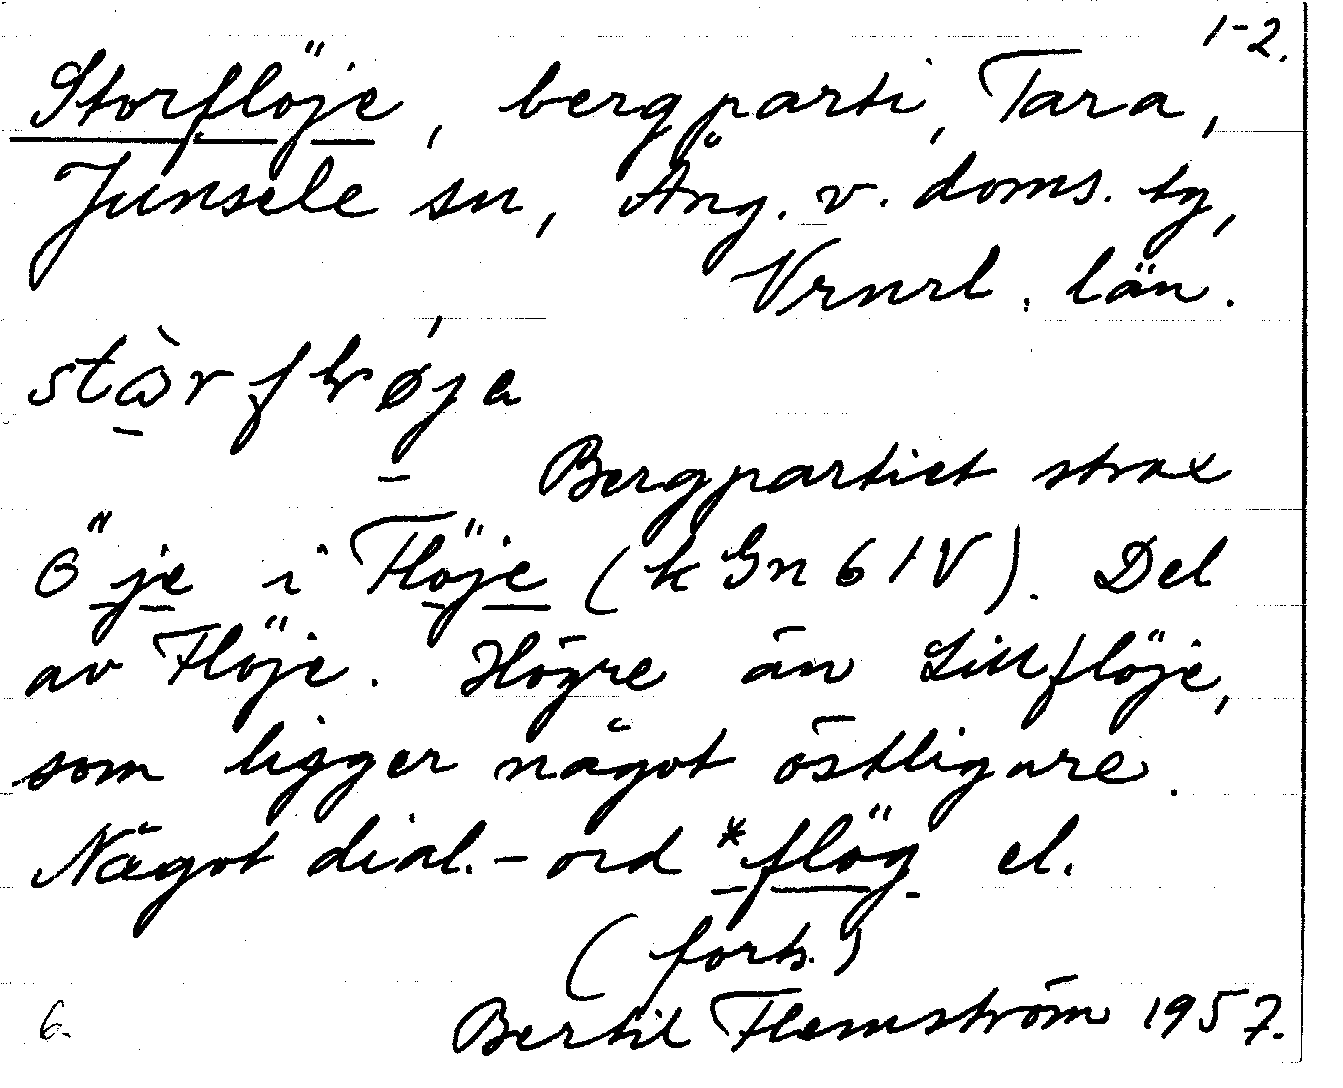 1-2.
Storflöje, bergparti, Tara,
Junsele sn, Ång. v. doms. tg,
Vrnrl. län.
Bergpartiet strax
Ö je i Flöje (k Gn 61V). Del
av Flöje. Högre än Lillflöje,
som ligger något östligare.
Något dial.-ord *flög el.
(forts.)
6.
Bertil Flemström 1957.